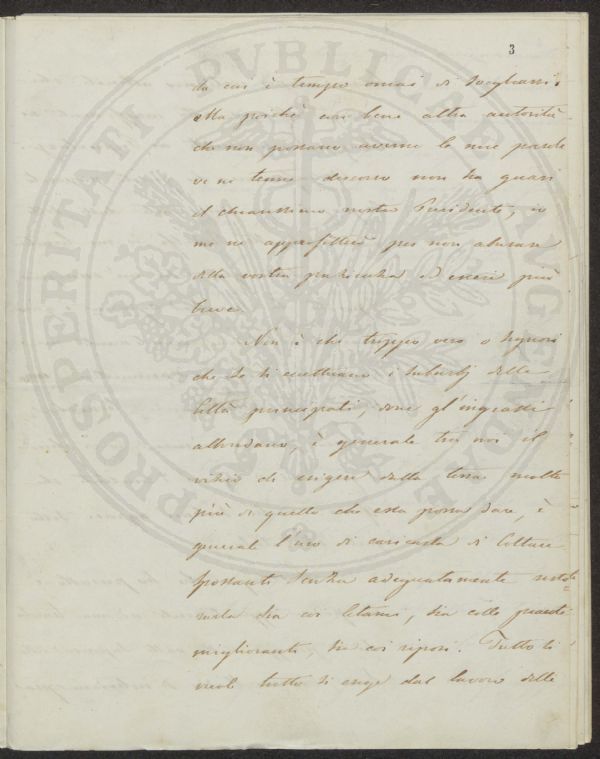 3
da cui è tempo omai di svegliarsi.
Ma poichè con bene altra autorità
che non possano averne le mie parole
ve ne tenne discorso non ha guari
il chiarissimo nostro Presidente, io
me ne approfitterò per non abusare
della vostra pazienza ed essere più
breve.
Non è che troppo vero o Signori
che se si eccettuano i suburbj delle
Città principali, dove gl'ingrassi
abbondano, è generale tra noi il
vizio di esigere dalla terra molto
più di quello che essa possa dare, è
generale l'uso di caricarla di colture
spossanti senza adeguatamente
sia coi letami, sia colle piante
miglioranti, sia coi riposi. Tutto si
vuole tutto si esige dal lavoro delle
PROSPERITATI PVBLICAE AVGENDAE